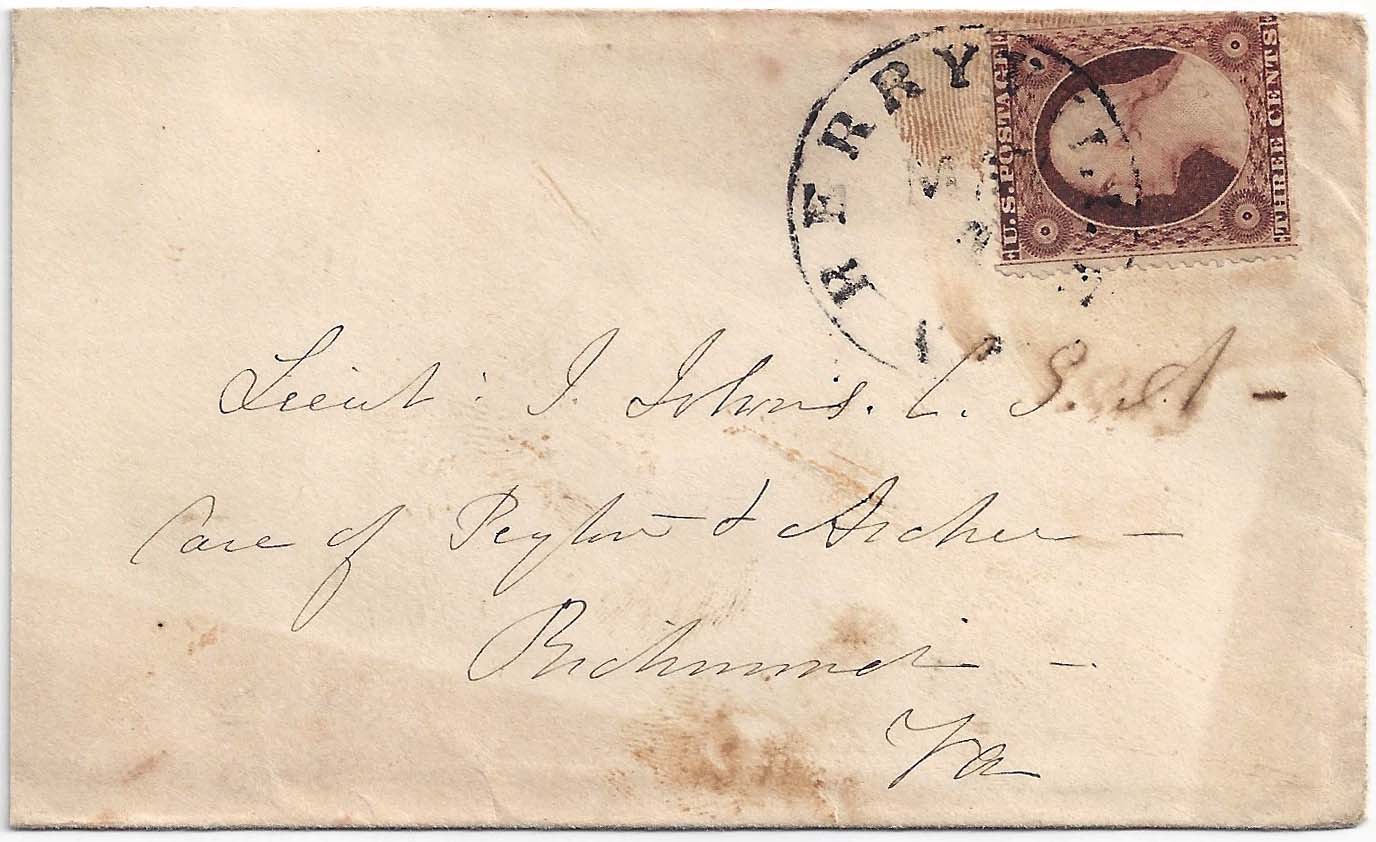 BERRYVILLE
U.S. POSTAGE
THREE CENTS
Lieut: J. Johns.
Care of Peyton & Archer —
Richmond —
Va